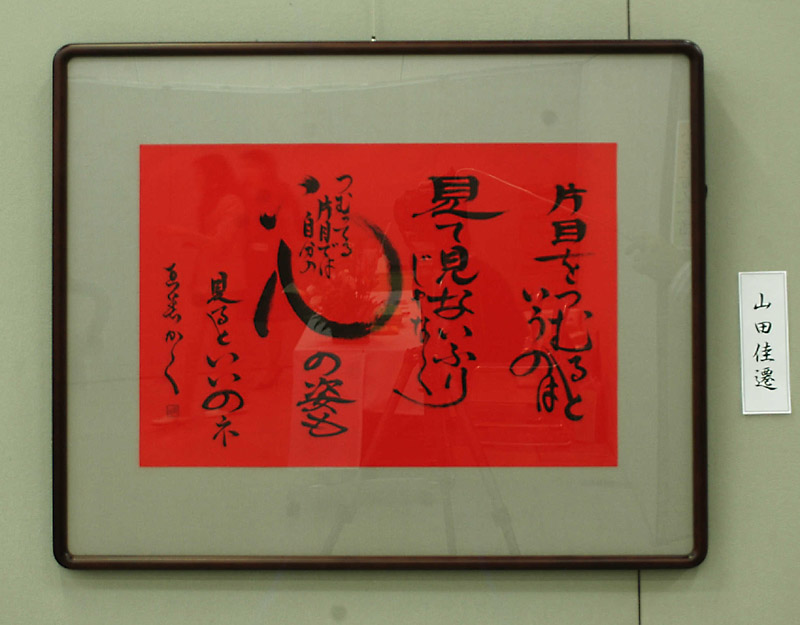 片目をつむると
いうのは
見て見ないふり
じゃなく
つむってる
片目では
自分の
心の姿も
見るといいのネ
かく
山田佳遷